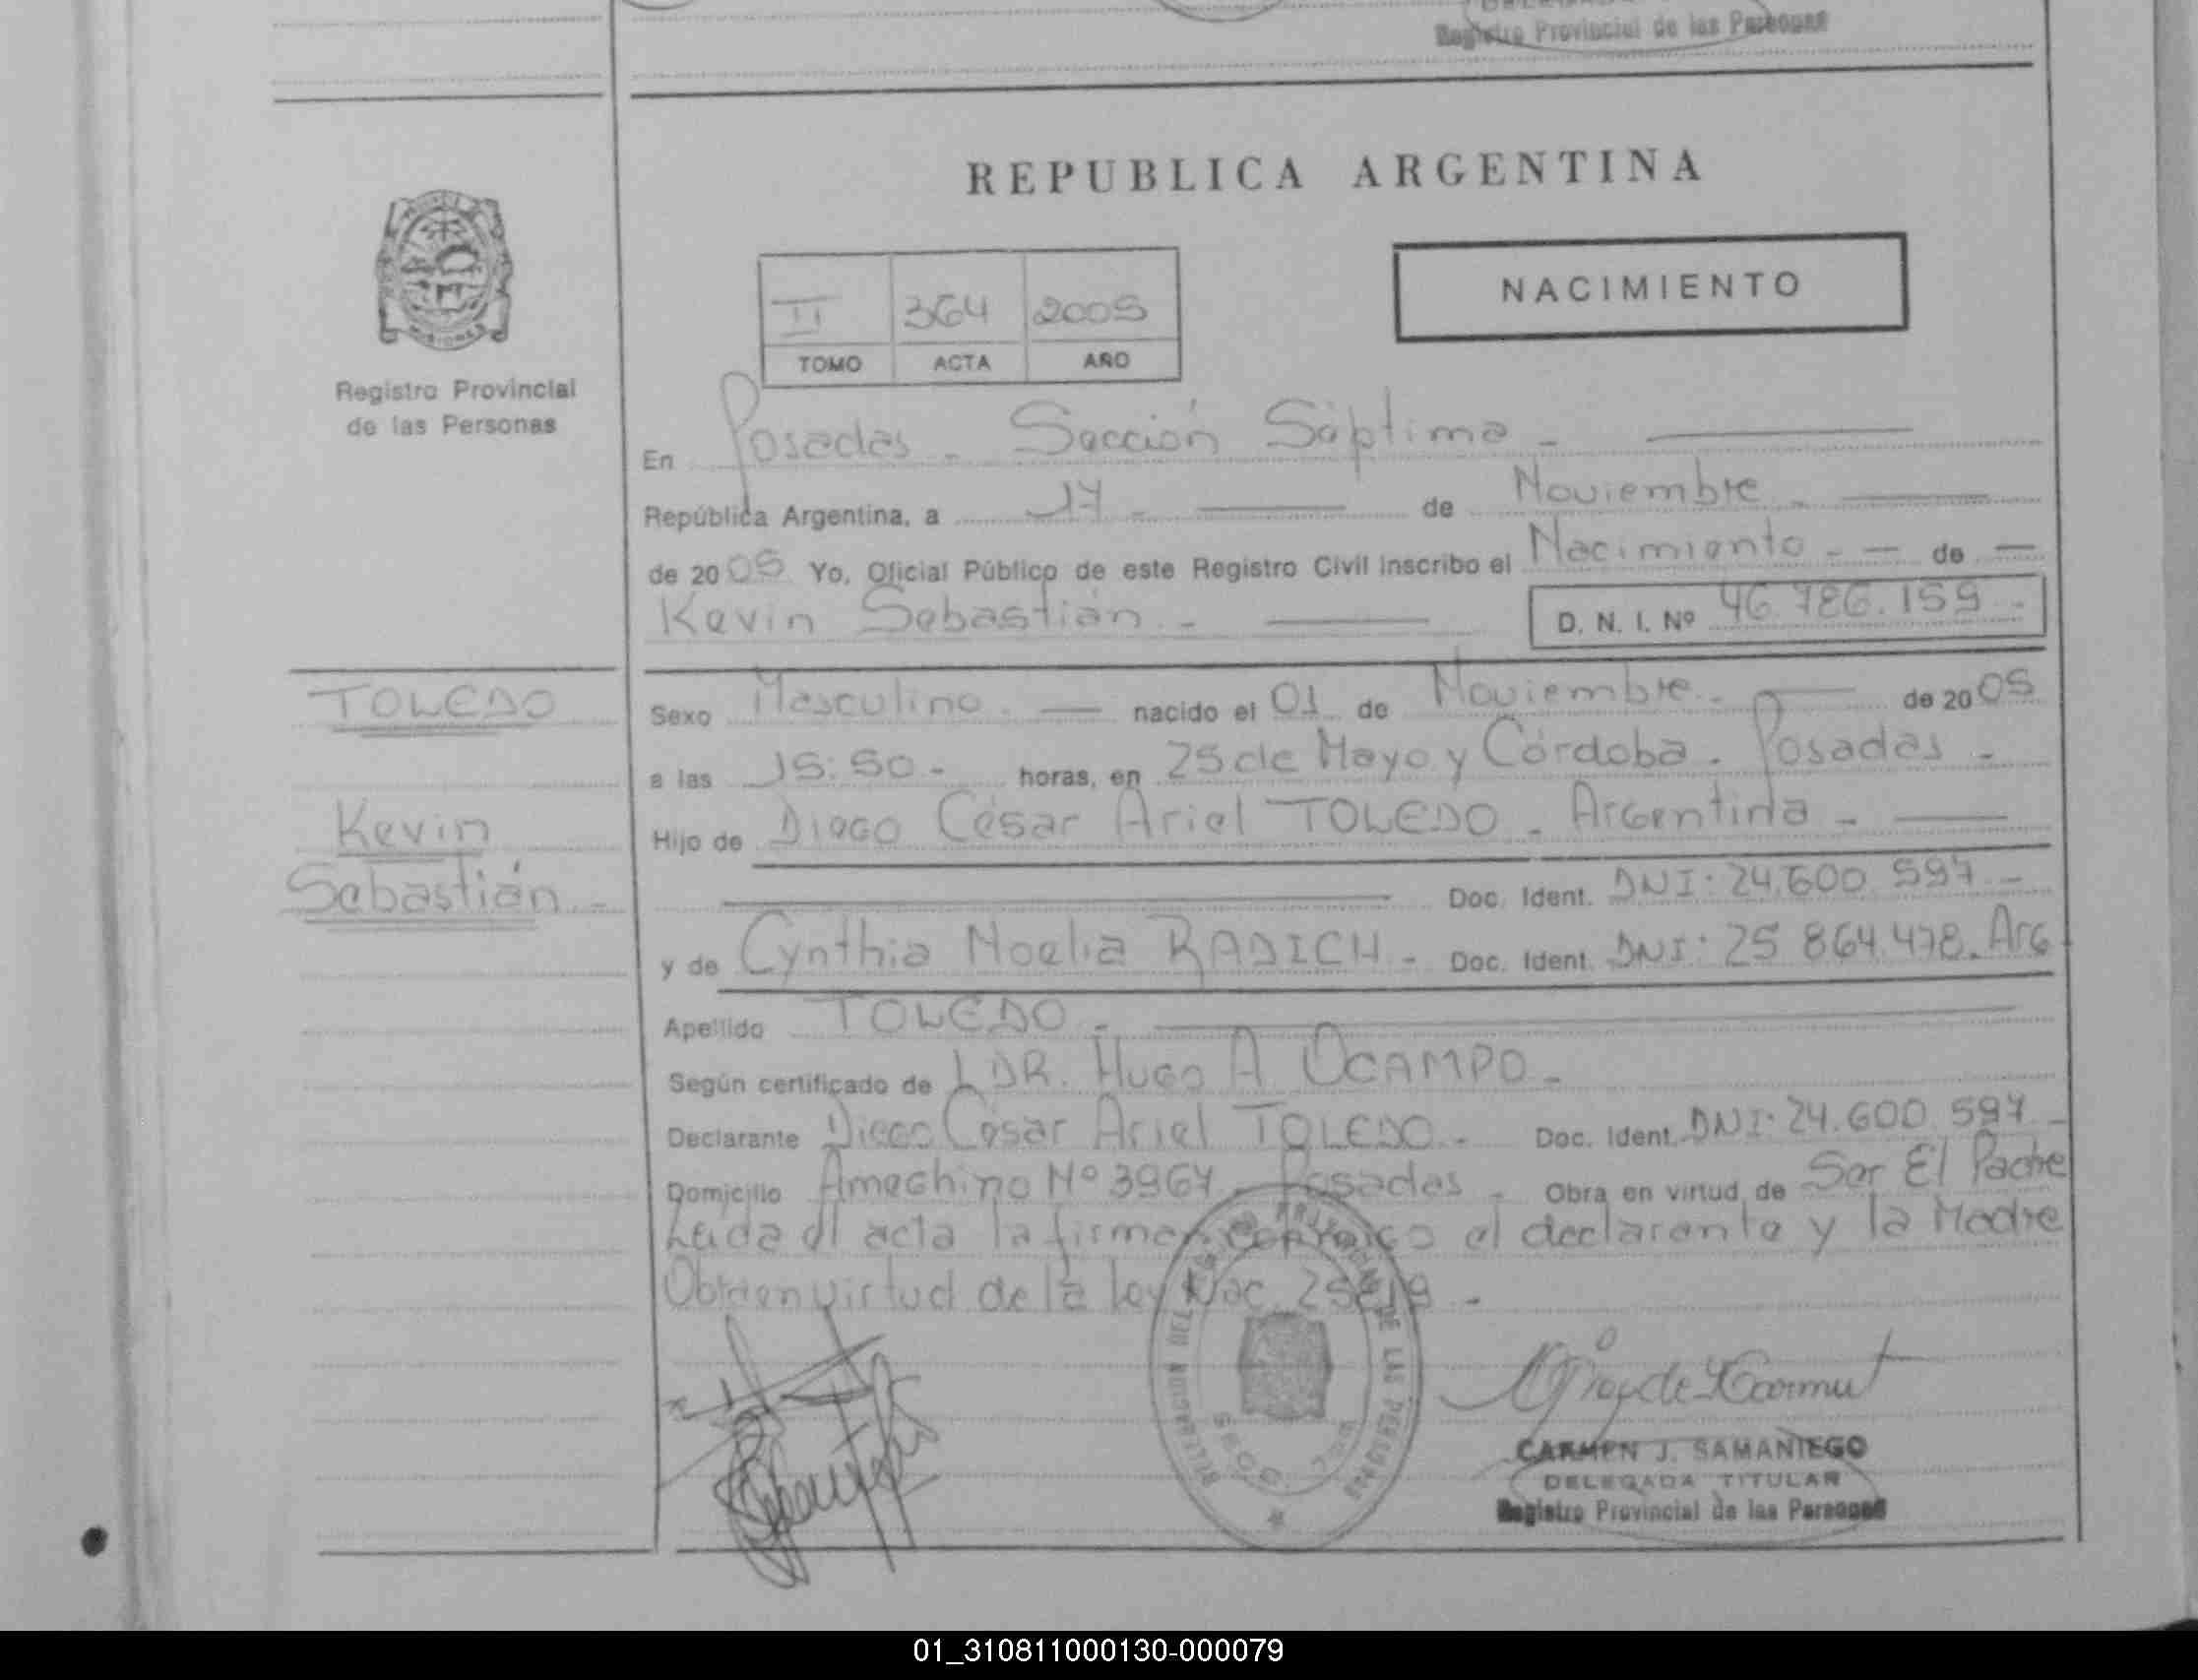 Registro Provincial de las Personas
REPUBLICA ARGENTINA
NACIMIENTO
II 364 2005
TOMO ACTA AÑO
Registro Provincial
de las Personas
En Posadas - Sección Séptima -
República Argentina, a 17 - de Noviembre -
de 2005 Yo, Oficial Público de este Registro Civil inscribo el Nacimiento - - de -
Kevin Sebastián - D. N. I. Nº 46.786.159 -
TOLEDO
Kevin
Sebastián -
Sexo Masculino - nacido el 01 de Noviembre - de 2005
a las 15:50 - horas, en 25 de Mayo y Córdoba - Posadas -
Hijo de Diego César Ariel TOLEDO - Argentina -
Doc. Ident. DNI: 24.600.597 -
y de Cynthia Noelia RADICH - Doc. Ident. DNI: 25.864.478. Arg
Apellido TOLEDO -
Según certificado de DR. Hugo A OCAMPO -
Declarante Diego César Ariel TOLEDO - Doc. Ident. DNI: 24.600.597 -
Domicilio Ameghino Nº 3967 - Posadas - Obra en virtud de Ser El Padre
Leida el acta la firman conmigo el declarante y la Madre
Obra en virtud de la Ley Nac. -
DELEGACION DEL REGISTRO PROVINCIAL DE LAS PERSONAS
CARMEN J. SAMANIEGO
DELEGADA TITULAR
Registro Provincial de las Personas
01_310811000130-000079